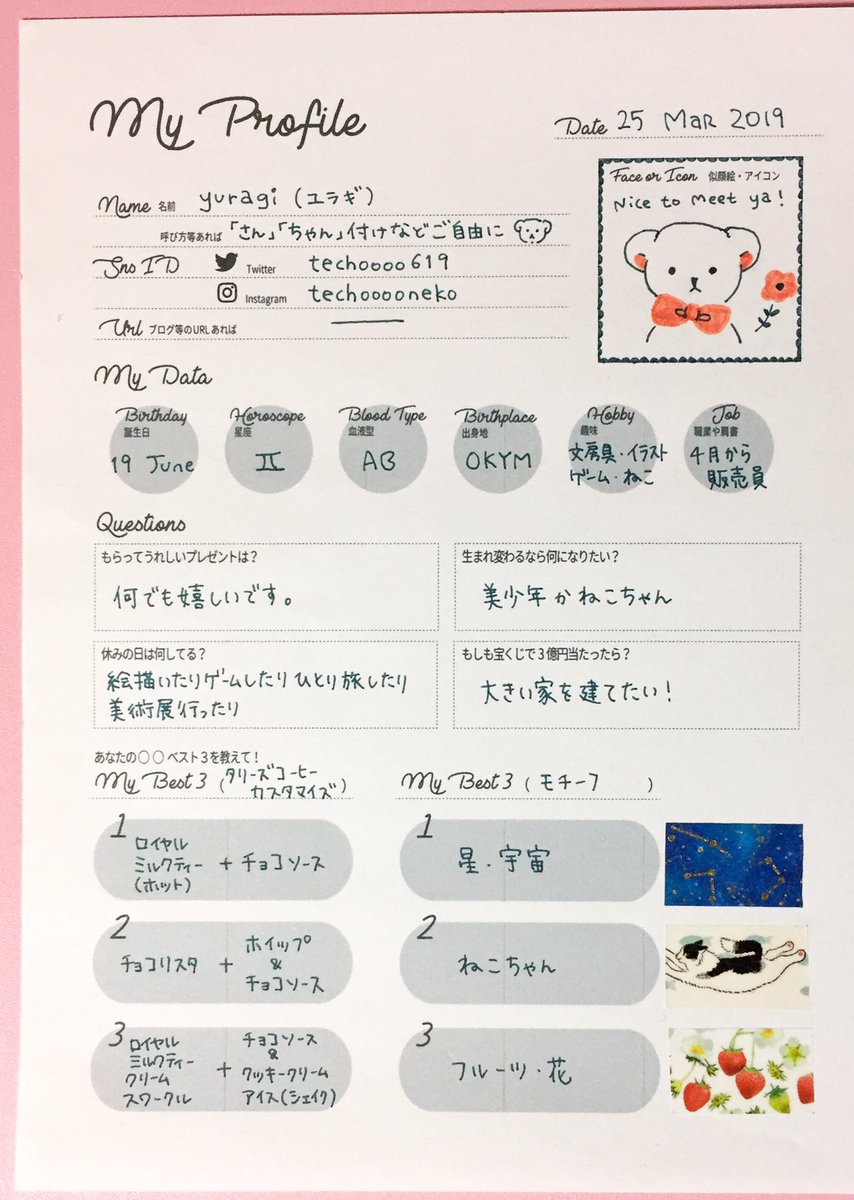 My Profile
Date 25 Mar 2019
Name 名前 yuragi (ユラギ)
呼び方等あれば 「さん」「ちゃん」付けなどご自由に
Sns ID Twitter techoooo619
Instagram techooooneko
Url ブログ等のURLあれば
Face or Icon 似顔絵・アイコン
Nice to meet ya!
My Data
Birthday Horoscope Blood Type Birthplace Hobby Job
誕生日 星座 血液型 出身地 趣味 職業や肩書
19 June II AB OKYM 文房具・イラスト 4月から
ゲーム・ねこ 販売員
Questions
もらってうれしいプレゼントは?
何でも嬉しいです。
生まれ変わるなら何になりたい?
美少年かねこちゃん
休みの日は何してる?
絵描いたりゲームしたりひとり旅したり
美術展行ったり
もしも宝くじで3億円当たったら?
大きい家を建てたい!
あなたの〇〇ベスト3を教えて!
My Best 3 (タリーズコーヒー
カスタマイズ)
1
ロイヤル
ミルクティー + チョコソース
(ホット)
2
チョコリスタ + ホイップ
&
チョコソース
3
ロイヤル
ミルクティー
クリーム
スワークル
+
チョコソース
&
クッキークリーム
アイス(シェイク)
My Best 3 (モチーフ)
1
星・宇宙
2
ねこちゃん
3
フルーツ・花